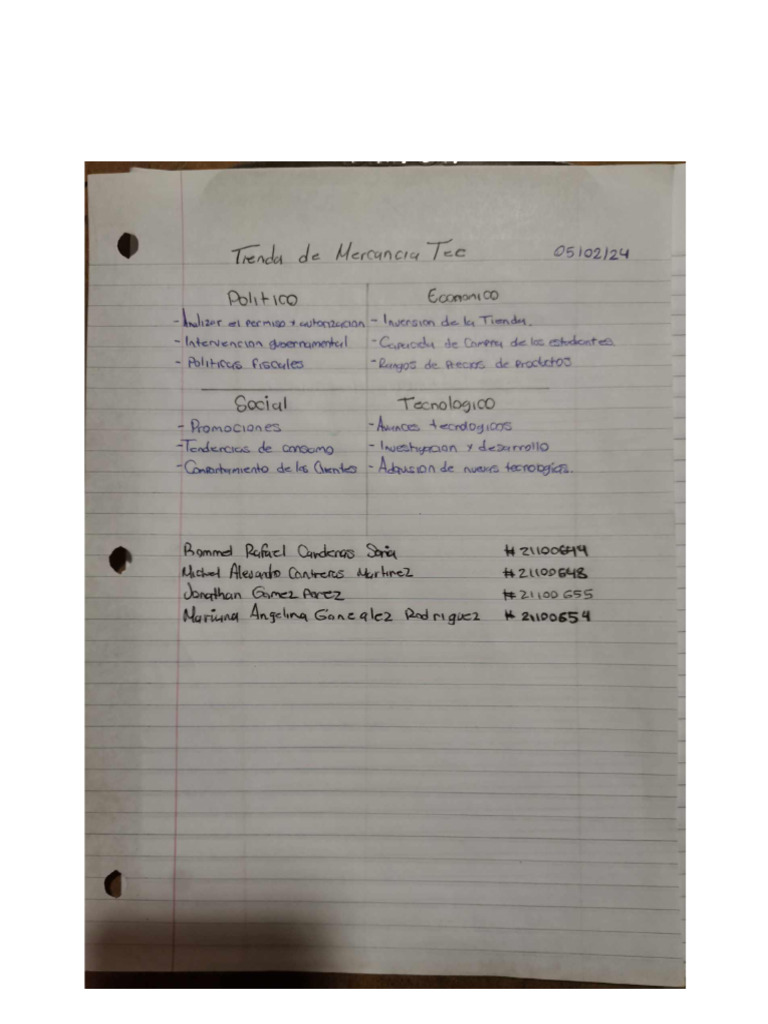 Tienda de Mercancia Tec 05/02/24
Politico
- Analizar el permiso y autorización
- Intervencion gubernamental
- Politicas fiscales
Economico
- Inversion de la Tienda.
- Capacida de Compra de los estudiantes
- Rangos de Precios de Productos
Social
- Promociones
- Tendencias de consumo
- Comportamiento de los Clientes
Tecnologico
- Avances tecnologicos
- Investigacion y desarrollo
- Adquision de nuevas tecnologías.
Rommel Rafael Cardenas Soria #21100649
Michel Alejandro Contreras Martinez #21100648
Jonathan Gamez Perez #21100655
Mariana Angelina Gonzalez Rodriguez #21100654